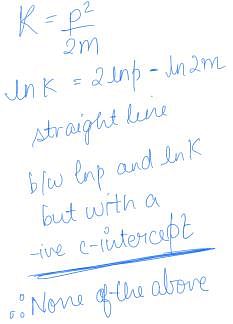 K = p²/2m
ln K = 2 ln p - ln 2m
straight line
b/w ln p and ln K
but with a
-ive c-intercept
∴ None of the above